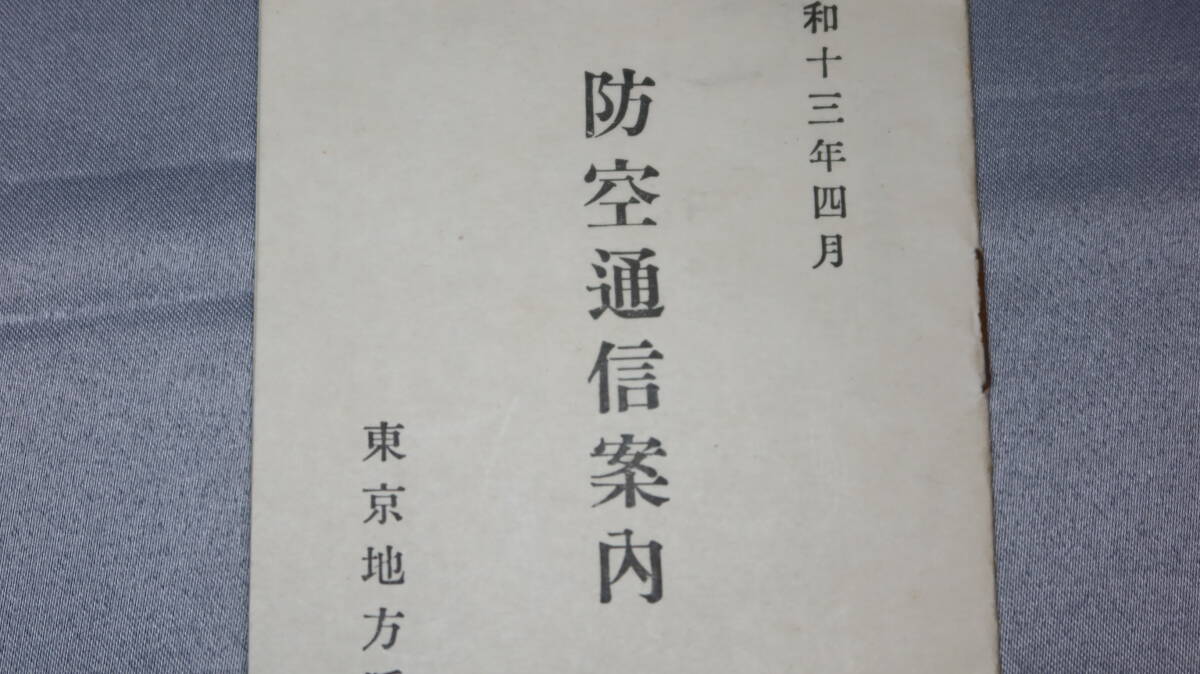 和十三年四月
防空通信案內
東京地方